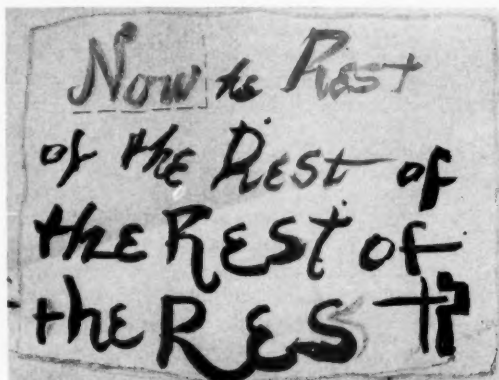 Now the Rest
of the Rest of
the Rest of
the REST